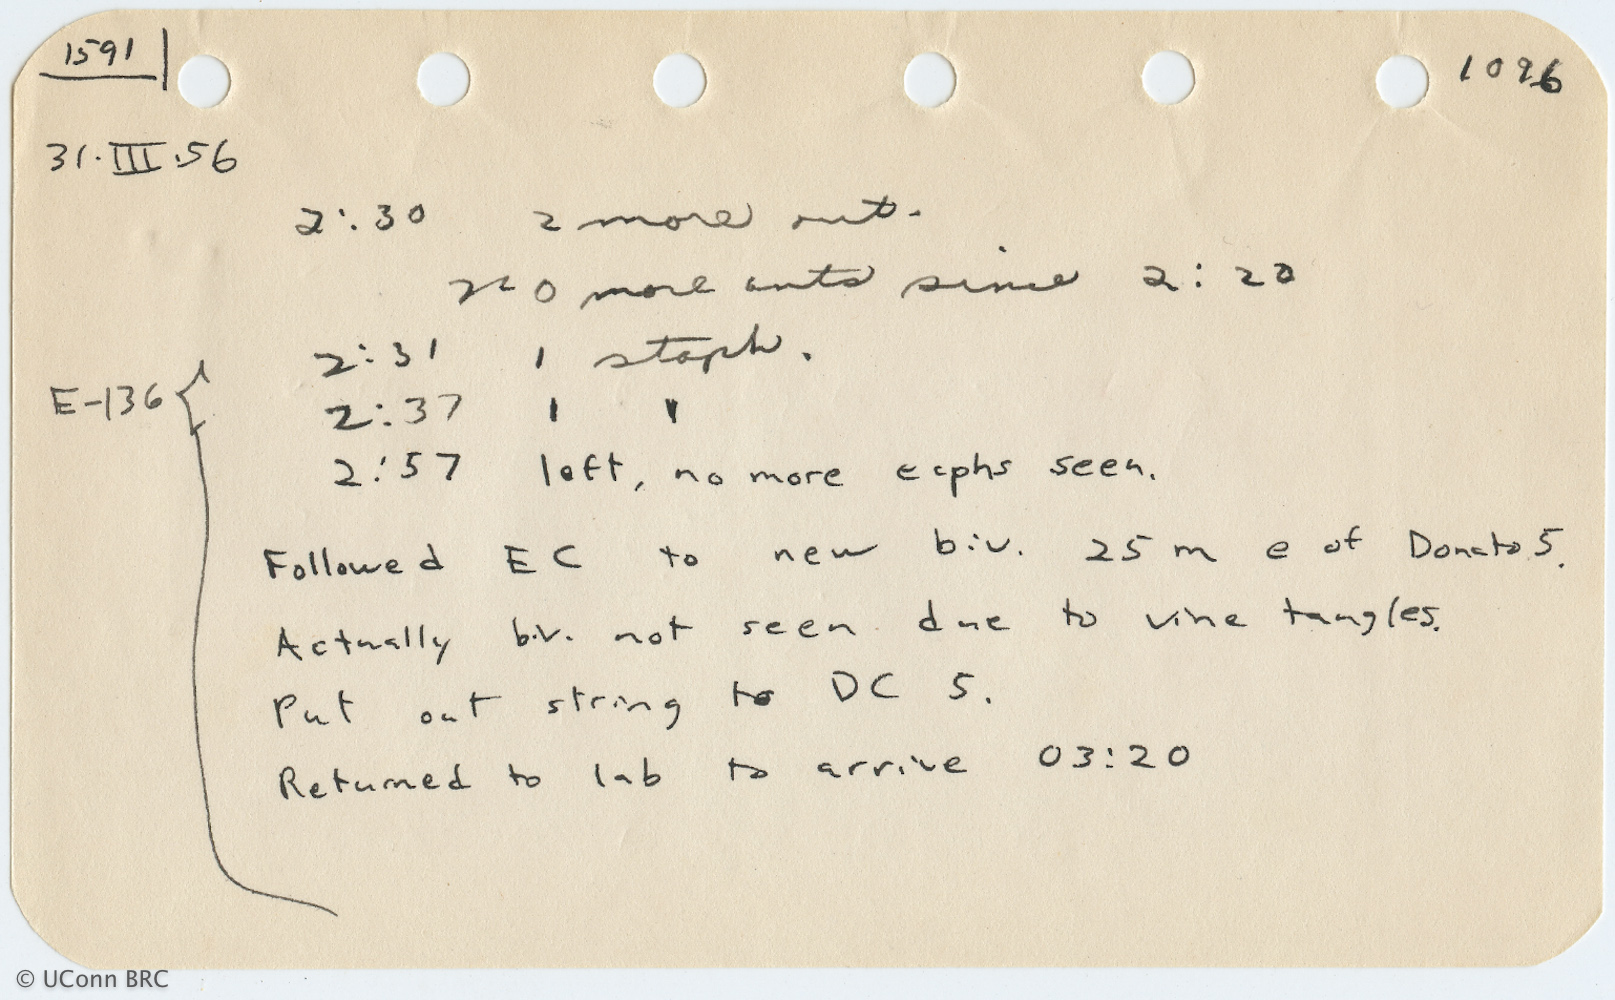 1591
1096
31.III.56
2:30 2 more out.
no more ants since 2:20
2:31 1 staph.
E-136
2:37 1 "
2:57 left, no more ecphs seen.
Followed EC to new biv. 25 m e of Donato 5.
Actually biv. not seen due to vine tangles.
Put out string to DC 5.
Returned to lab to arrive 03:20
© UConn BRC